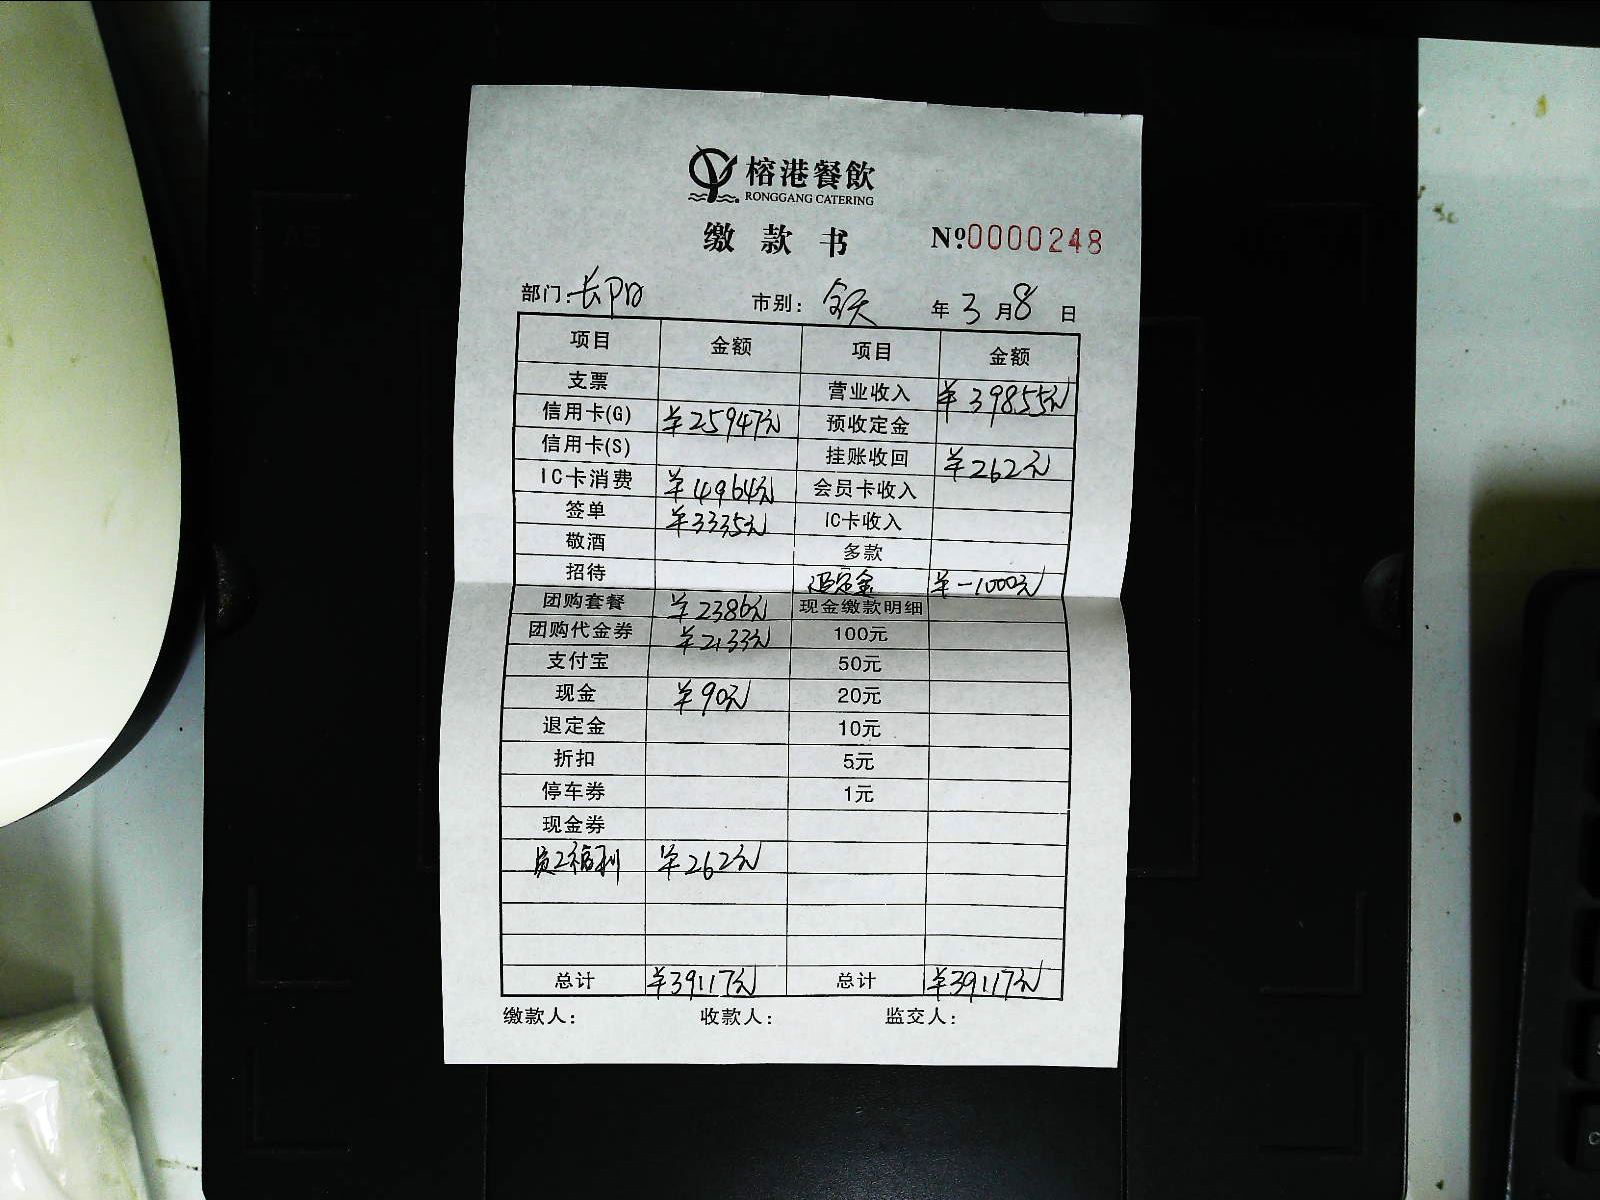 榕港餐飲
RONGGANG CATERING
缴款书 №0000248
部门:长阳 市别:全天 年3月8日
项目 金额 项目 金额
支票 营业收入 ¥39855元
信用卡(G) ¥25947元 预收定金
信用卡(S) 挂账收回 ¥262元
IC卡消费 ¥4964元 会员卡收入
签单 ¥3335元 IC卡收入
敬酒 多款
招待 退定金 ¥-1000元
团购套餐 ¥2386元 现金缴款明细
团购代金券 ¥2133元 100元
支付宝 50元
现金 ¥90元 20元
退定金 10元
折扣 5元
停车券 1元
现金券
员工福利 ¥262元
总计 ¥39117元 总计 ¥39117元
缴款人: 收款人: 监交人: